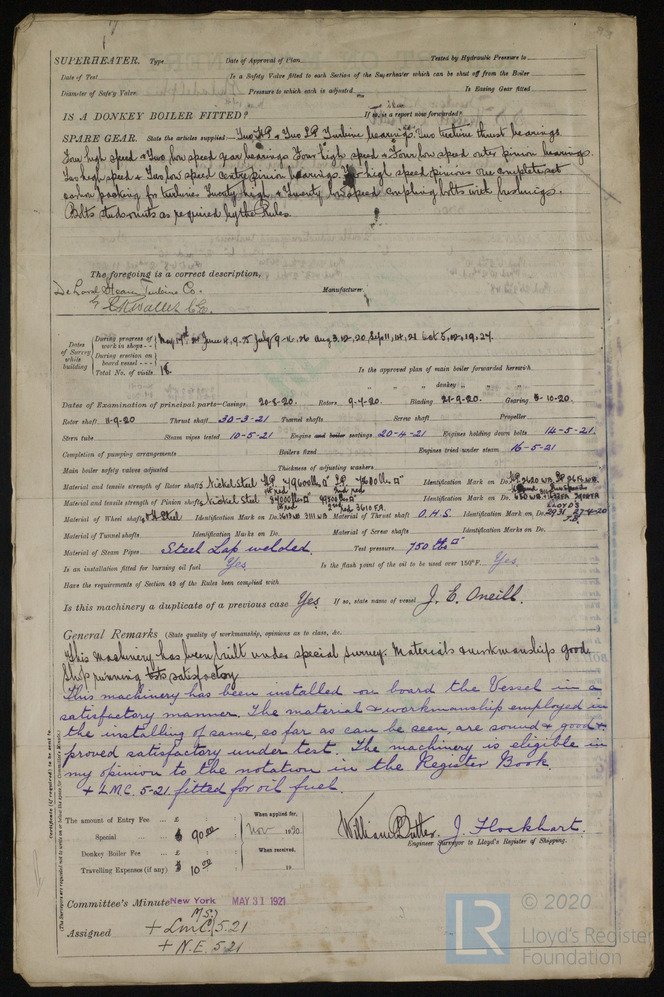 7
SUPERHEATER. Type Date of Approval of Plan Tested by Hydraulic Pressure to
Date of Test Is a Safety Valve fitted to each Section of the Superheater which can be shut off from the Boiler
Diameter of Safety Valve Pressure to which each is adjusted Is Easing Gear fitted
IS A DONKEY BOILER FITTED? If so, is a report now forwarded?
SPARE GEAR. State the articles supplied:— Two HP & Two LP Turbine bearings. Two turbine thrust bearings
Four high speed & Two low speed gear bearings Four high speed & Four low speed outer pinion bearings
Two high speed & Two low speed centre pinion bearings. high speed pinions One complete set
carbon packing for turbine. Twenty high & Twenty low speed coupling bolts with bushings.
Bolts studs nuts as required by the Rules.
The foregoing is a correct description,
De Laval Steam Turbine Co. Manufacturer.
Dates of Survey while building
During progress of work in shops - - May 14th June 4, 9, 25 July 9 - 16. 26 Aug 3, 12, 20, Sep 11, 14, 21 Oct 5, 12, 19, 27.
During erection on board vessel - - -
Total No. of visits 18. Is the approved plan of main boiler forwarded herewith
" " " donkey " " "
Dates of Examination of principal parts—Casings 20-8-20. Rotors 9-7-20. Blading 21-9-20. Gearing 5-10-20.
Rotor shaft 11-9-20 Thrust shaft 30-3-21 Tunnel shafts Screw shaft Propeller
Stern tube Steam pipes tested 10-5-21 Engine and boiler seatings 20-4-21 Engines holding down bolts 14-5-21.
Completion of pumping arrangements Boilers fixed Engines tried under steam 16-5-21
Main boiler safety valves adjusted Thickness of adjusting washers
Material and tensile strength of Rotor shafts Nickel steel Identification Mark on Do.
Material and tensile strength of Pinion shafts Nickel steel Identification Mark on Do.
Material of Wheel shafts Steel Identification Mark on Do. Material of Thrust shaft O.H.S. Identification Mark on Do. LLOYDS 2931 27-4-20
Material of Tunnel shafts Identification Marks on Do. Material of Screw shafts Identification Marks on Do.
Material of Steam Pipes Steel Lap welded. Test pressure 750 lbs □"
Is an installation fitted for burning oil fuel Yes Is the flash point of the oil to be used over 150°F. Yes.
Have the requirements of Section 49 of the Rules been complied with
Is this machinery a duplicate of a previous case Yes If so, state name of vessel J. E. Oneill.
General Remarks (State quality of workmanship, opinions as to class, &c.
This Machinery has been built under special survey. Materials & workmanship good.
Shop running tests satisfactory
This machinery has been installed on board the Vessel in a
satisfactory manner. The material & workmanship employed in
the installing of same, so far as can be seen, are sound & good &
proved satisfactory under test. The machinery is eligible in
my opinion to the notation in the Register Book.
+ LMC. 5-21 fitted for oil fuel.
Certificate (if required) to be sent to
(The Surveyors are requested not to write on or below the space for Committee's Minute.)
The amount of Entry Fee ... £ : : When applied for,
Special ... ... $ 90.00 : Nov 1920.
Donkey Boiler Fee ... £ : : When received,
Travelling Expenses (if any) $ 10.00 : 19
William Butler. J. Flockhart.
Engineer Surveyor to Lloyd's Register of Shipping.
Committee's Minute New York MAY 31 1921
Assigned + LMC. (M.S.) 5.21
+ N.E. 5-21
LR © 2020
Lloyd's Register
Foundation